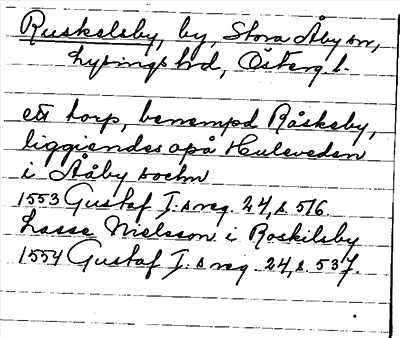 Ruskelsby, by, Stora Åby sn,
Lysings hd, Österg. l.
ett torp, benempd Råskeby,
liggiendes opå Huleveden
i Ååby sochn
1553 Gustaf I:s reg. 24, s. 516.
Lasse Nielsson i Roskilsby
1554 Gustaf I:s reg. 24, s. 537.